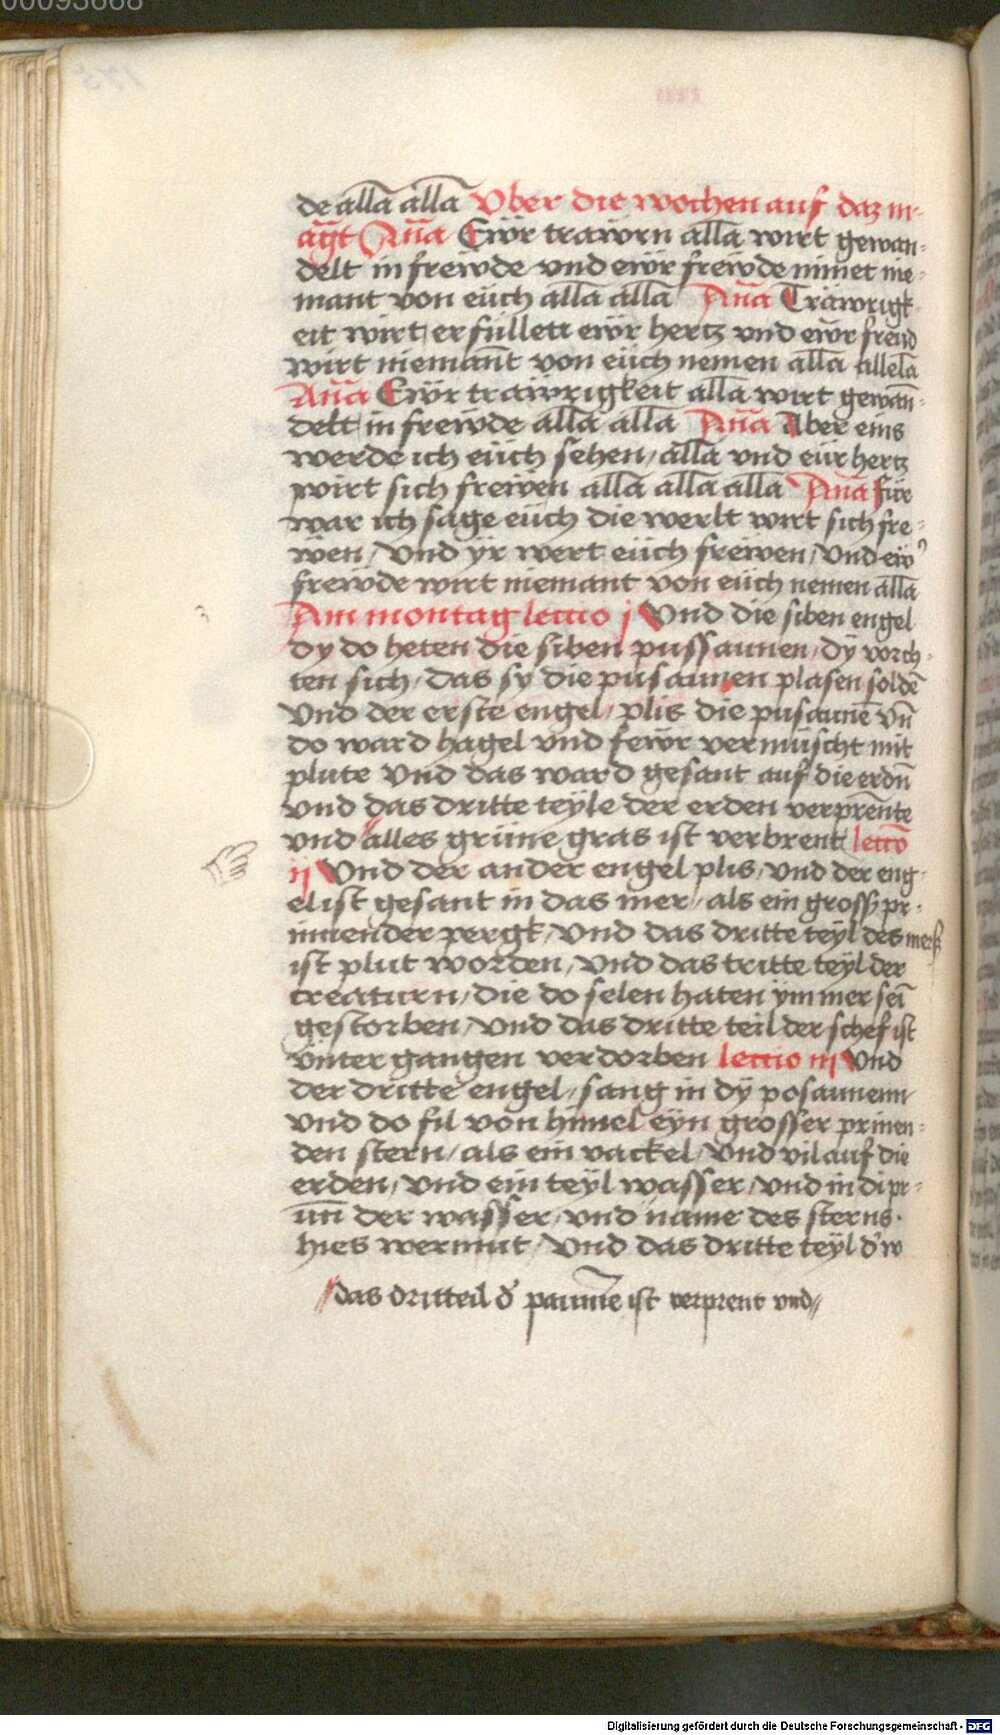 00093668
de alla alla Vber die wochen auf daz m-
agt Ana Ewr trawrn alla wirt gewan-
delt in frewde und ewr frewde nimet nie-
mant von euch alla alla Ana Trawrigk-
eit wirt erfullett ewr hertz vnd ewr freud
wirt niemant von euch nemen alla allela
Ana Ewr trawrigkeit alla wirt gewan-
delt in frewde alla alla Ana Aber eins
werde ich euch sehen, alla vnd eur hertz
wirt sich frewen alla alla alla Ana Fur
war ich sage euch die werlt wirt sich fre-
wen, Vnd yr wert euch frewen, Vnd ew
frewde wirt niemant von euch nemen alla
Am montag leccio j Vnd die siben engel
dy do heten die siben pussaunen, dy vorch-
ten sich, das sy die pusaunen plasen solde
Vnd der erste engel, plis die pusaune vn
do ward hagel vnd fewr vermuscht mit
plute Vnd das ward gesant auf die erdn
vnd das dritte teyle der erden verprente
vnd alles grune gras ist verbrent leccio
ij Vnd der ander engel plis, vnd der eng-
el ist gesant in das mer, als ein grosß pr-
innender pergk, Vnd das dritte teyl des merß
ist plut worden, Vnd das tritte teyl der
creaturn, die do selen haten ym mer sei
gestorben, vnd das dritte teil der schef ist
vnter gangen verdorben leccio iij Vnd
der dritte engel, sang in dy posaunenn
vnd do fil von himel eyn grosser prinen-
den stern, als ein vackel, Vnd vil auf die
erden, vnd ein teyl wasser, vnd in di pr-
unn der wasser, vnd name des sterns.
hies wermut, Vnd das dritte teyl d' w
das dritteil d' paume ist verprent vnd
Digitalisierung gefördert durch die Deutsche Forschungsgemeinschaft - DFG